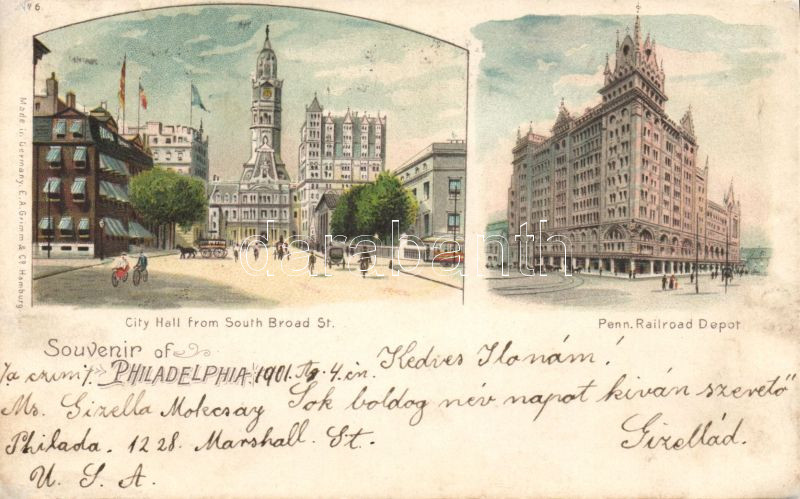 No 6
Made in Germany E.A. Grimm & Co Hamburg
darabanth
City Hall from South Broad St.
Penn. Railroad Depot
Souvenir of
PHILADELPHIA 1901. 4.én. Kedves Ilonám!
Ms. Gizella Molecsay Sok boldog név napot kíván szerető
Philada. 1228. Marshall. St. Gizellád.
U. S. A.